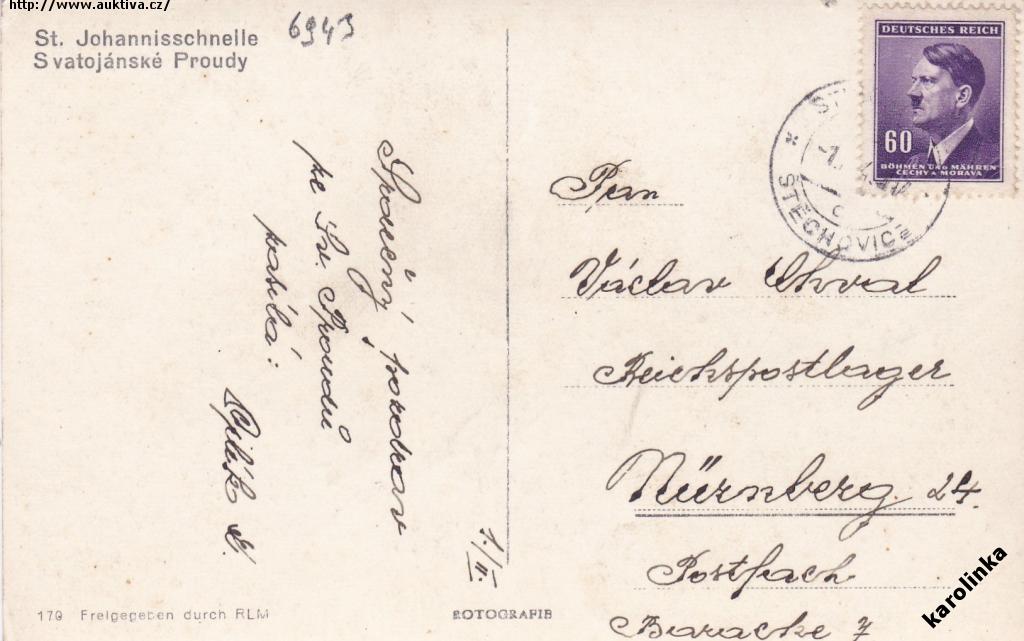 http://www.auktiva.cz/
St. Johannisschnelle
Svatojánské Proudy
6943
Srdečný pozdrav
ze Sv. Proudů
zasílá:
1./II.
DEUTSCHES REICH
60
BÖHMEN UND MÄHREN
ČECHY A MORAVA
ŠTĚCHOVICE
Pan
Václav Chval
Reichspostlager
Nürnberg 24.
Postfach
Baracke 7
170 Freigegeben durch RLM
ROTOGRAFIE
karolinka